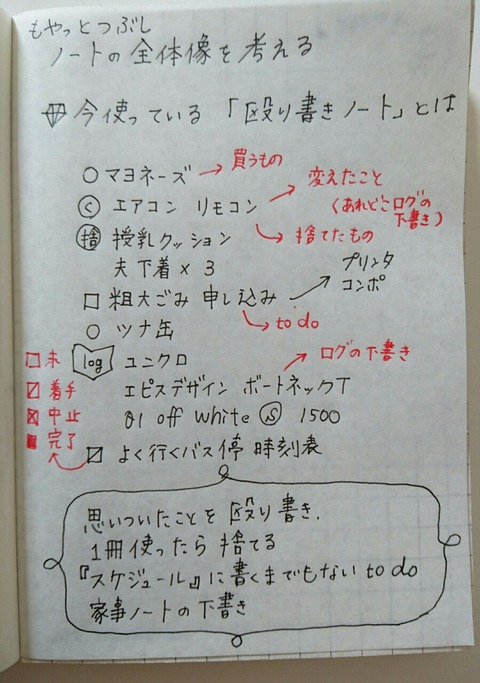 もやっとつぶし
ノートの全体像を考える
今使っている「殴り書きノート」とは
○ マヨネーズ → 買うもの
Ⓒ エアコン リモコン → 変えたこと
(あれどこログの
下書き)
捨 授乳クッション → 捨てたもの
夫下着×3
□ 粗大ごみ 申し込み → プリンタ
コンポ
→ to do
○ ツナ缶
log ユニクロ → ログの下書き
エピスデザイン ボートネックT
01 off white Ⓢ 1500
よく行くバス停 時刻表
□ 未
着手
中止
完了
思いついたことを殴り書き.
1冊使ったら捨てる
『スケジュール』に書くまでもない to do
家事ノートの下書き